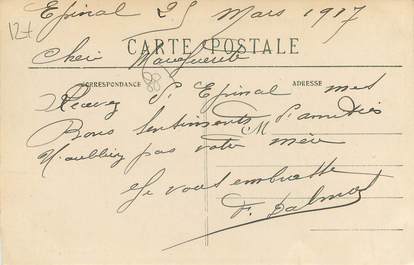 12+
Epinal 25 Mars 1917
CARTE POSTALE
Cher Marguerite
CORRESPONDANCE
ADRESSE
Recevez d'Epinal mes
Bons Sentiments d'amitiés
M
N'oubliez pas votre mère
Je vous embrasse
F. Dalmat